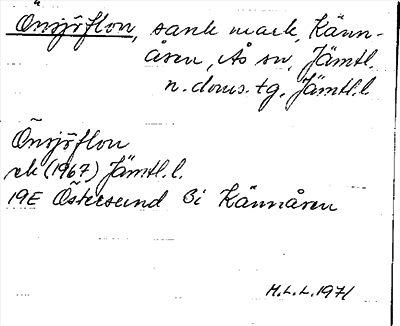 Önsjöflon, sank mark, Känn-
åsen, Ås sn, Jämtl.
n. doms.tg, Jämtl.l.
Önsjöflon
ek (1967) Jämtl.l.
19E Östersund 3i Kännåsen
M.L.L.1971